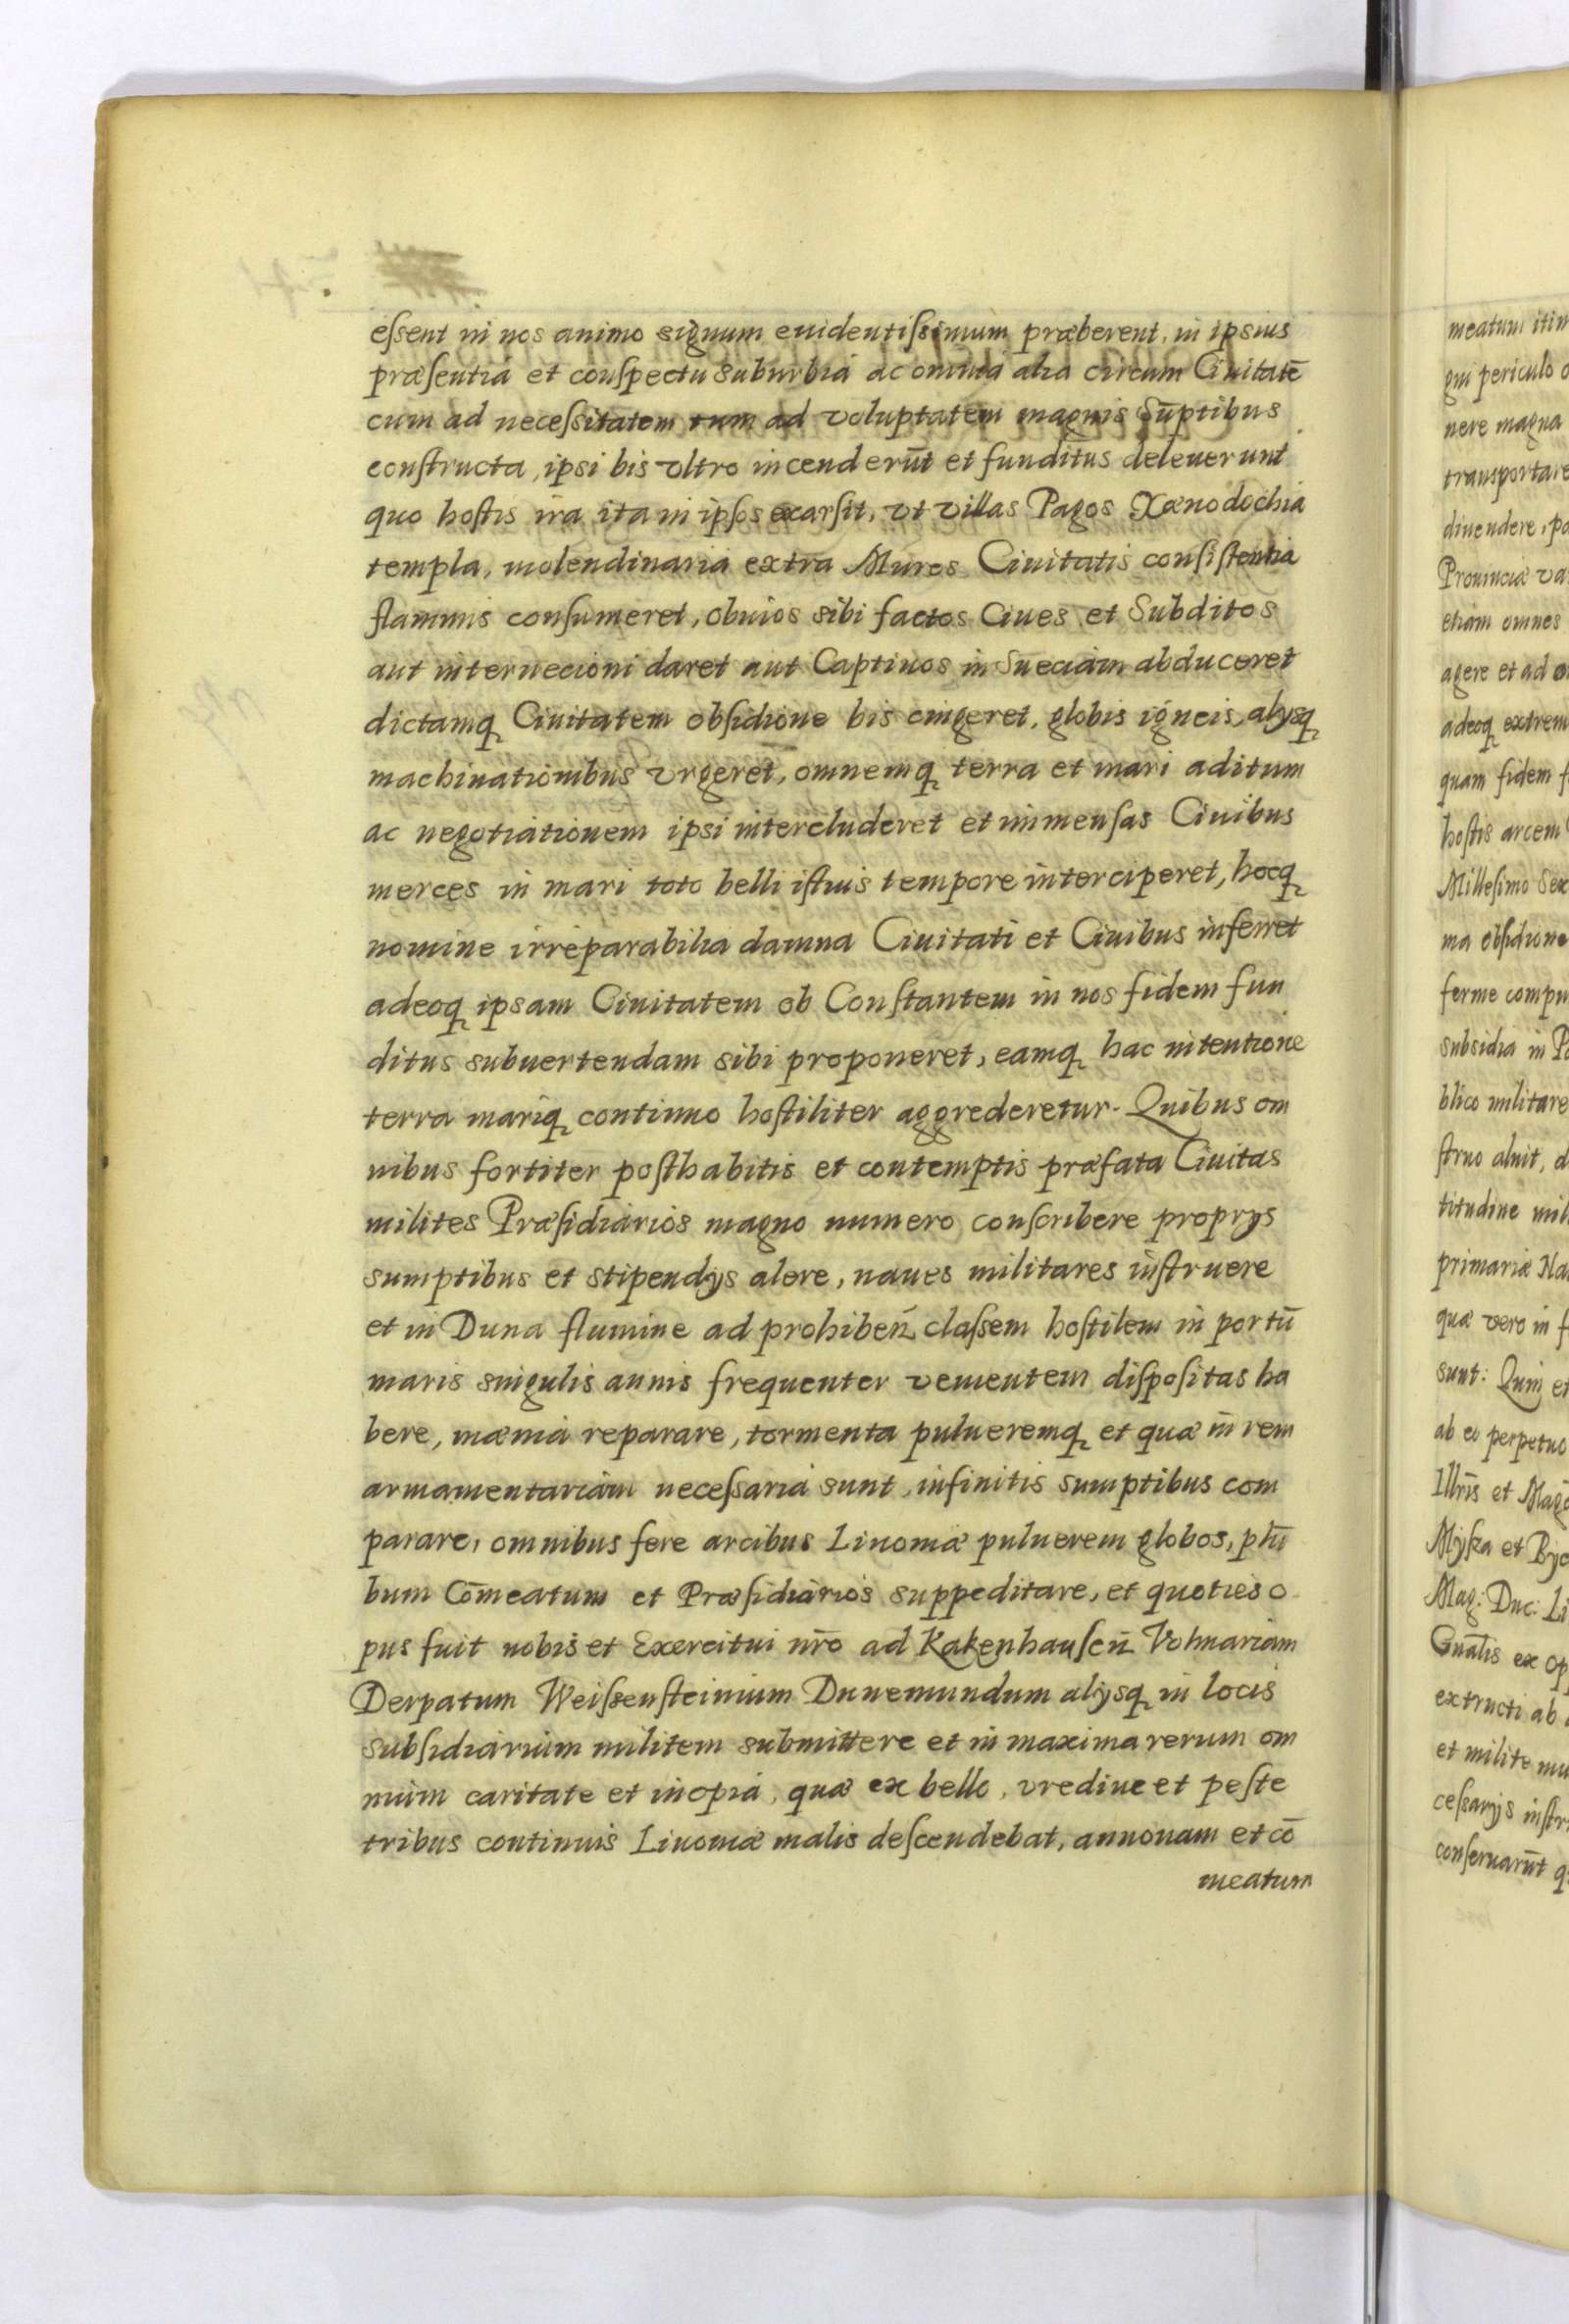 eſsent in nos animo signum euidentiſsimum præberent, in ipsius
præſentia et conſpectu suburbia ac omnia alia circum Ciuitatē
cum ad neceſsitatem tum ad voluptatem magnis Sūptibus
conſtructa, ipsi bis vltro incenderūt et funditus deleuerunt
quo hoſtis ira ita in ipſos exarſit, vt villas Pagos Xænodochia
templa, molendinaria extra Muros Ciuitatis conſiſtentia
flammis conſumeret, obuios sibi factos Ciues et Subditos
aut internecioni daret aut Captiuos in Sueciam abduceret
dictamq̨ Ciuitatem obſidione bis cingeret, globis igneis, alysq̨
machinationibus vrgeret, omnemq̨ terra et mari aditum
ac negotiationem ipsi intercluderet et immenſas Ciuibus
merces in mari toto belli iſtius tempore interciperet, hocq̨
nomine irreparabilia damna Ciuitati et Ciuibus inferret
adeoq̨ ipsam Ciuitatem ob Conſtantem in nos fidem fun
ditus subuertendam sibi proponeret, eamq̨ hac intentione
terra mariq̨ continuo hoſtiliter aggrederetur. Quibus om
nibus fortiter poſthabitis et contemptis præfata Ciuitas
milites Præſidiarios magno numero conſcribere proprys
sumptibus et stipendys alere, naues militares inſtruere
et in Duna flumine ad prohibeñ claſsem hoſtilem in portū
maris singulis annis frequenter venientem diſpoſitas ha
bere, mænia reparare, tormenta puluеremq̨ et quæ in rem
armamentariam neceſsaria sunt, infinitis sumptibus com
parare, omnibus fere arcibus Liuoniæ puluerem globos, plū
bum Cōmeatum et Præſidiarios suppeditare, et quoties o
pus fuit nobis et Exercitui nr̄o ad Kakenhauſeñ Volmariam
Derpatum Weiſsenſteinium Dunemundum alysq̨ in locis
subſidiarium militem submittere et in maxima rerum om
nium caritate et inopia, quæ ex bello, vredine et peſte
tribus continuis Liuoniæ malis deſcendebat, annonam et cō
meatum
meatum itin
gni periculo
nere magna
transportare
diuendere, pa
Prouinciæ va
etiam omnes
agere et ad
adeoq̨ extrem
quam fidem f
hoſtis arcem
Milleſimo Sex
ma obſidione
ferme compu
subsidia in P
blico militare
ſtruo aluit, d
titudine mil
primariæ Na
quæ vero in f
sunt: Quin et
ab eo perpetuo
Illr̄is et Mag
Myſka et Byc
Mag: Duc: Li
Gn̄alis ex op
extructi ab
et milite mu
ceſsarys inſtr
conſeruarūt q